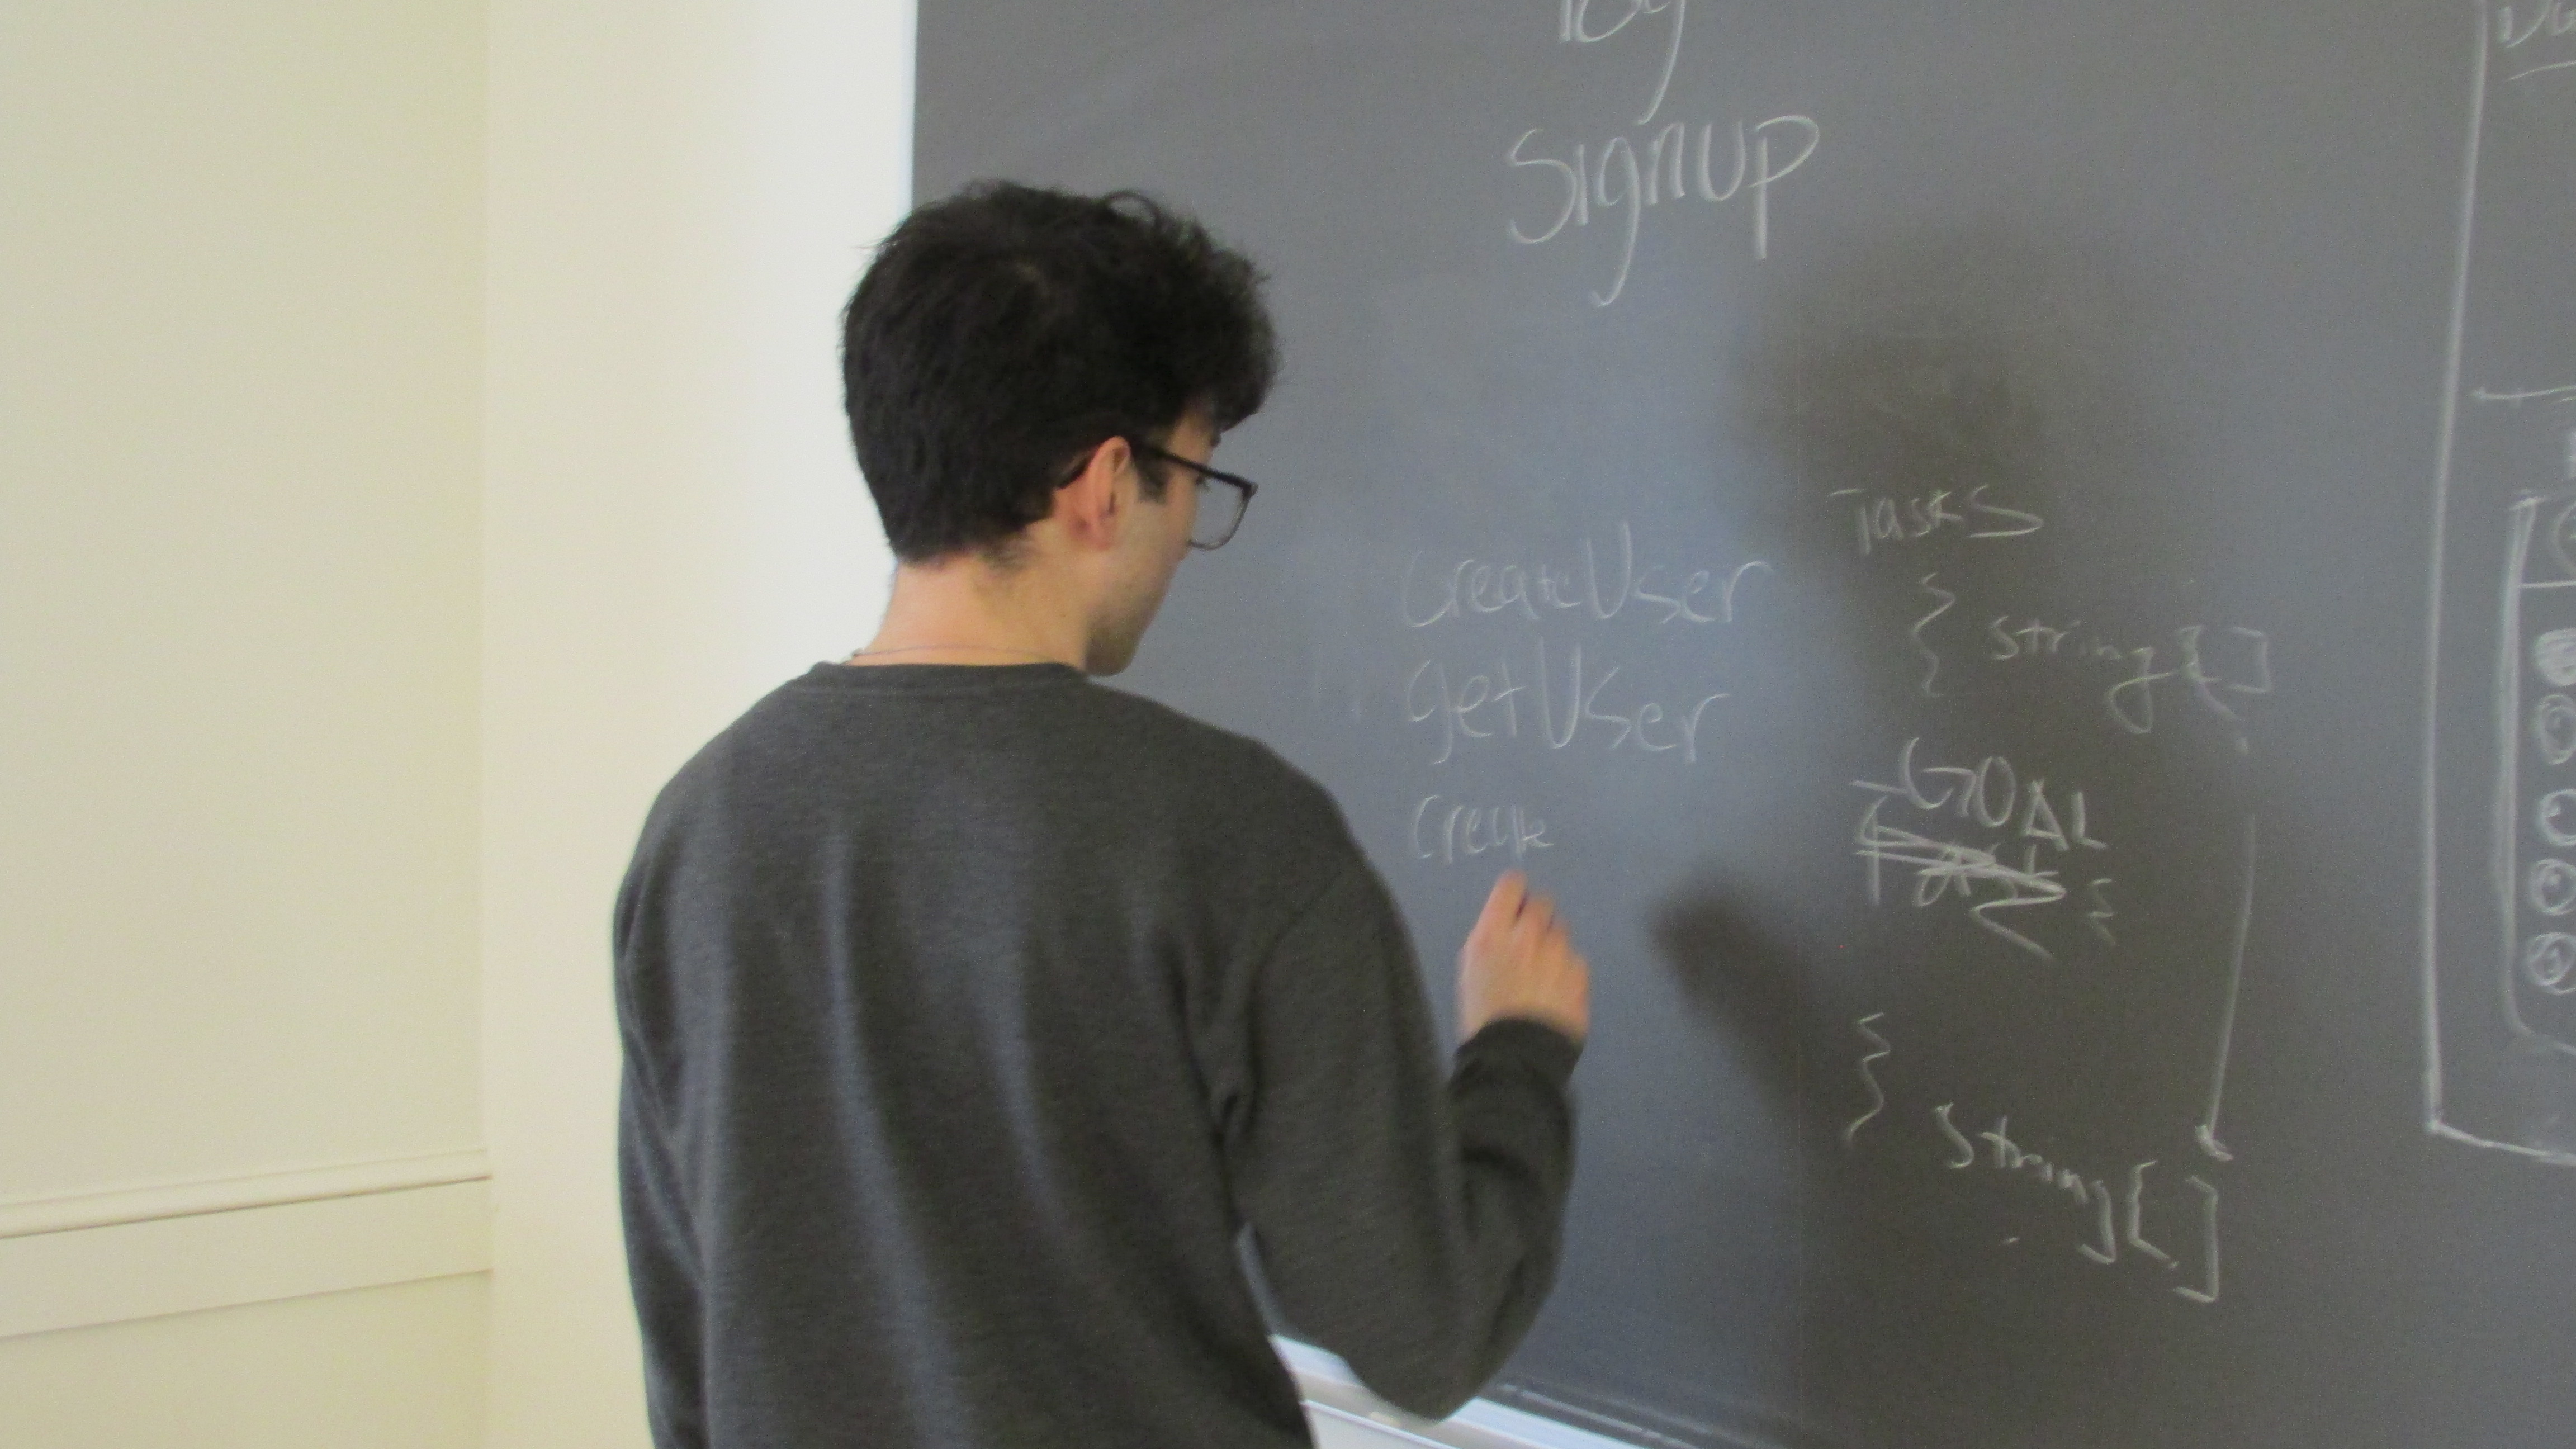 Signup
createUser
getUser
create
Tasks
{ string[]
GOAL
{
}
String[]